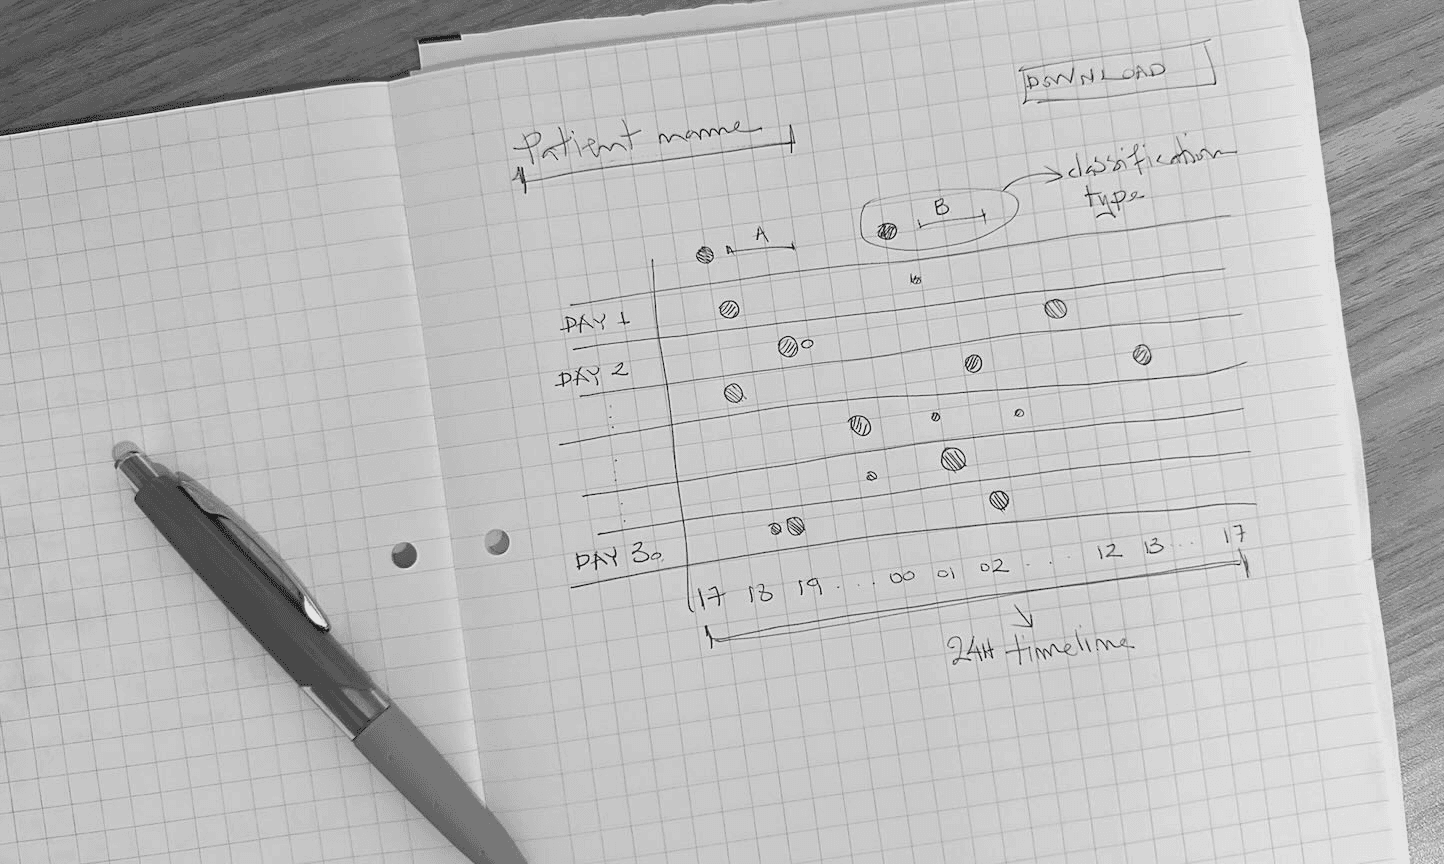 DOWNLOAD
Patient name
classification
type
A
B
DAY 1
DAY 2
DAY 30
17 18 19 .... 00 01 02 .... 12 13 ... 17
24H timeline